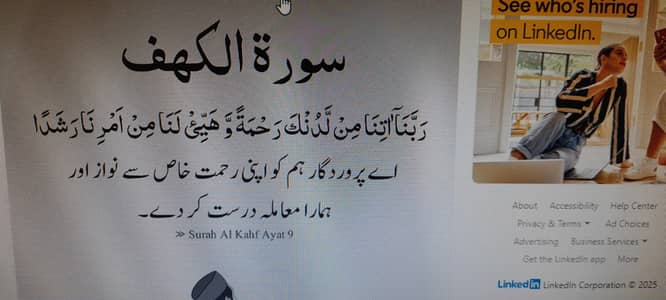 سورة الكهف
رَبَّنَآ اٰتِنَا مِنْ لَّدُنْكَ رَحْمَةً وَّ هَيِّئْ لَنَا مِنْ اَمْرِنَا رَشَدًا
اے پروردگار ہم کو اپنی رحمت خاص سے نواز اور
ہمارا معاملہ درست کر دے۔
≫ Surah Al Kahf Ayat 9
See who's hiring
on LinkedIn.
About Accessibility Help Center
Privacy & Terms Ad Choices
Advertising Business Services
Get the LinkedIn app More
LinkedIn LinkedIn Corporation © 2025